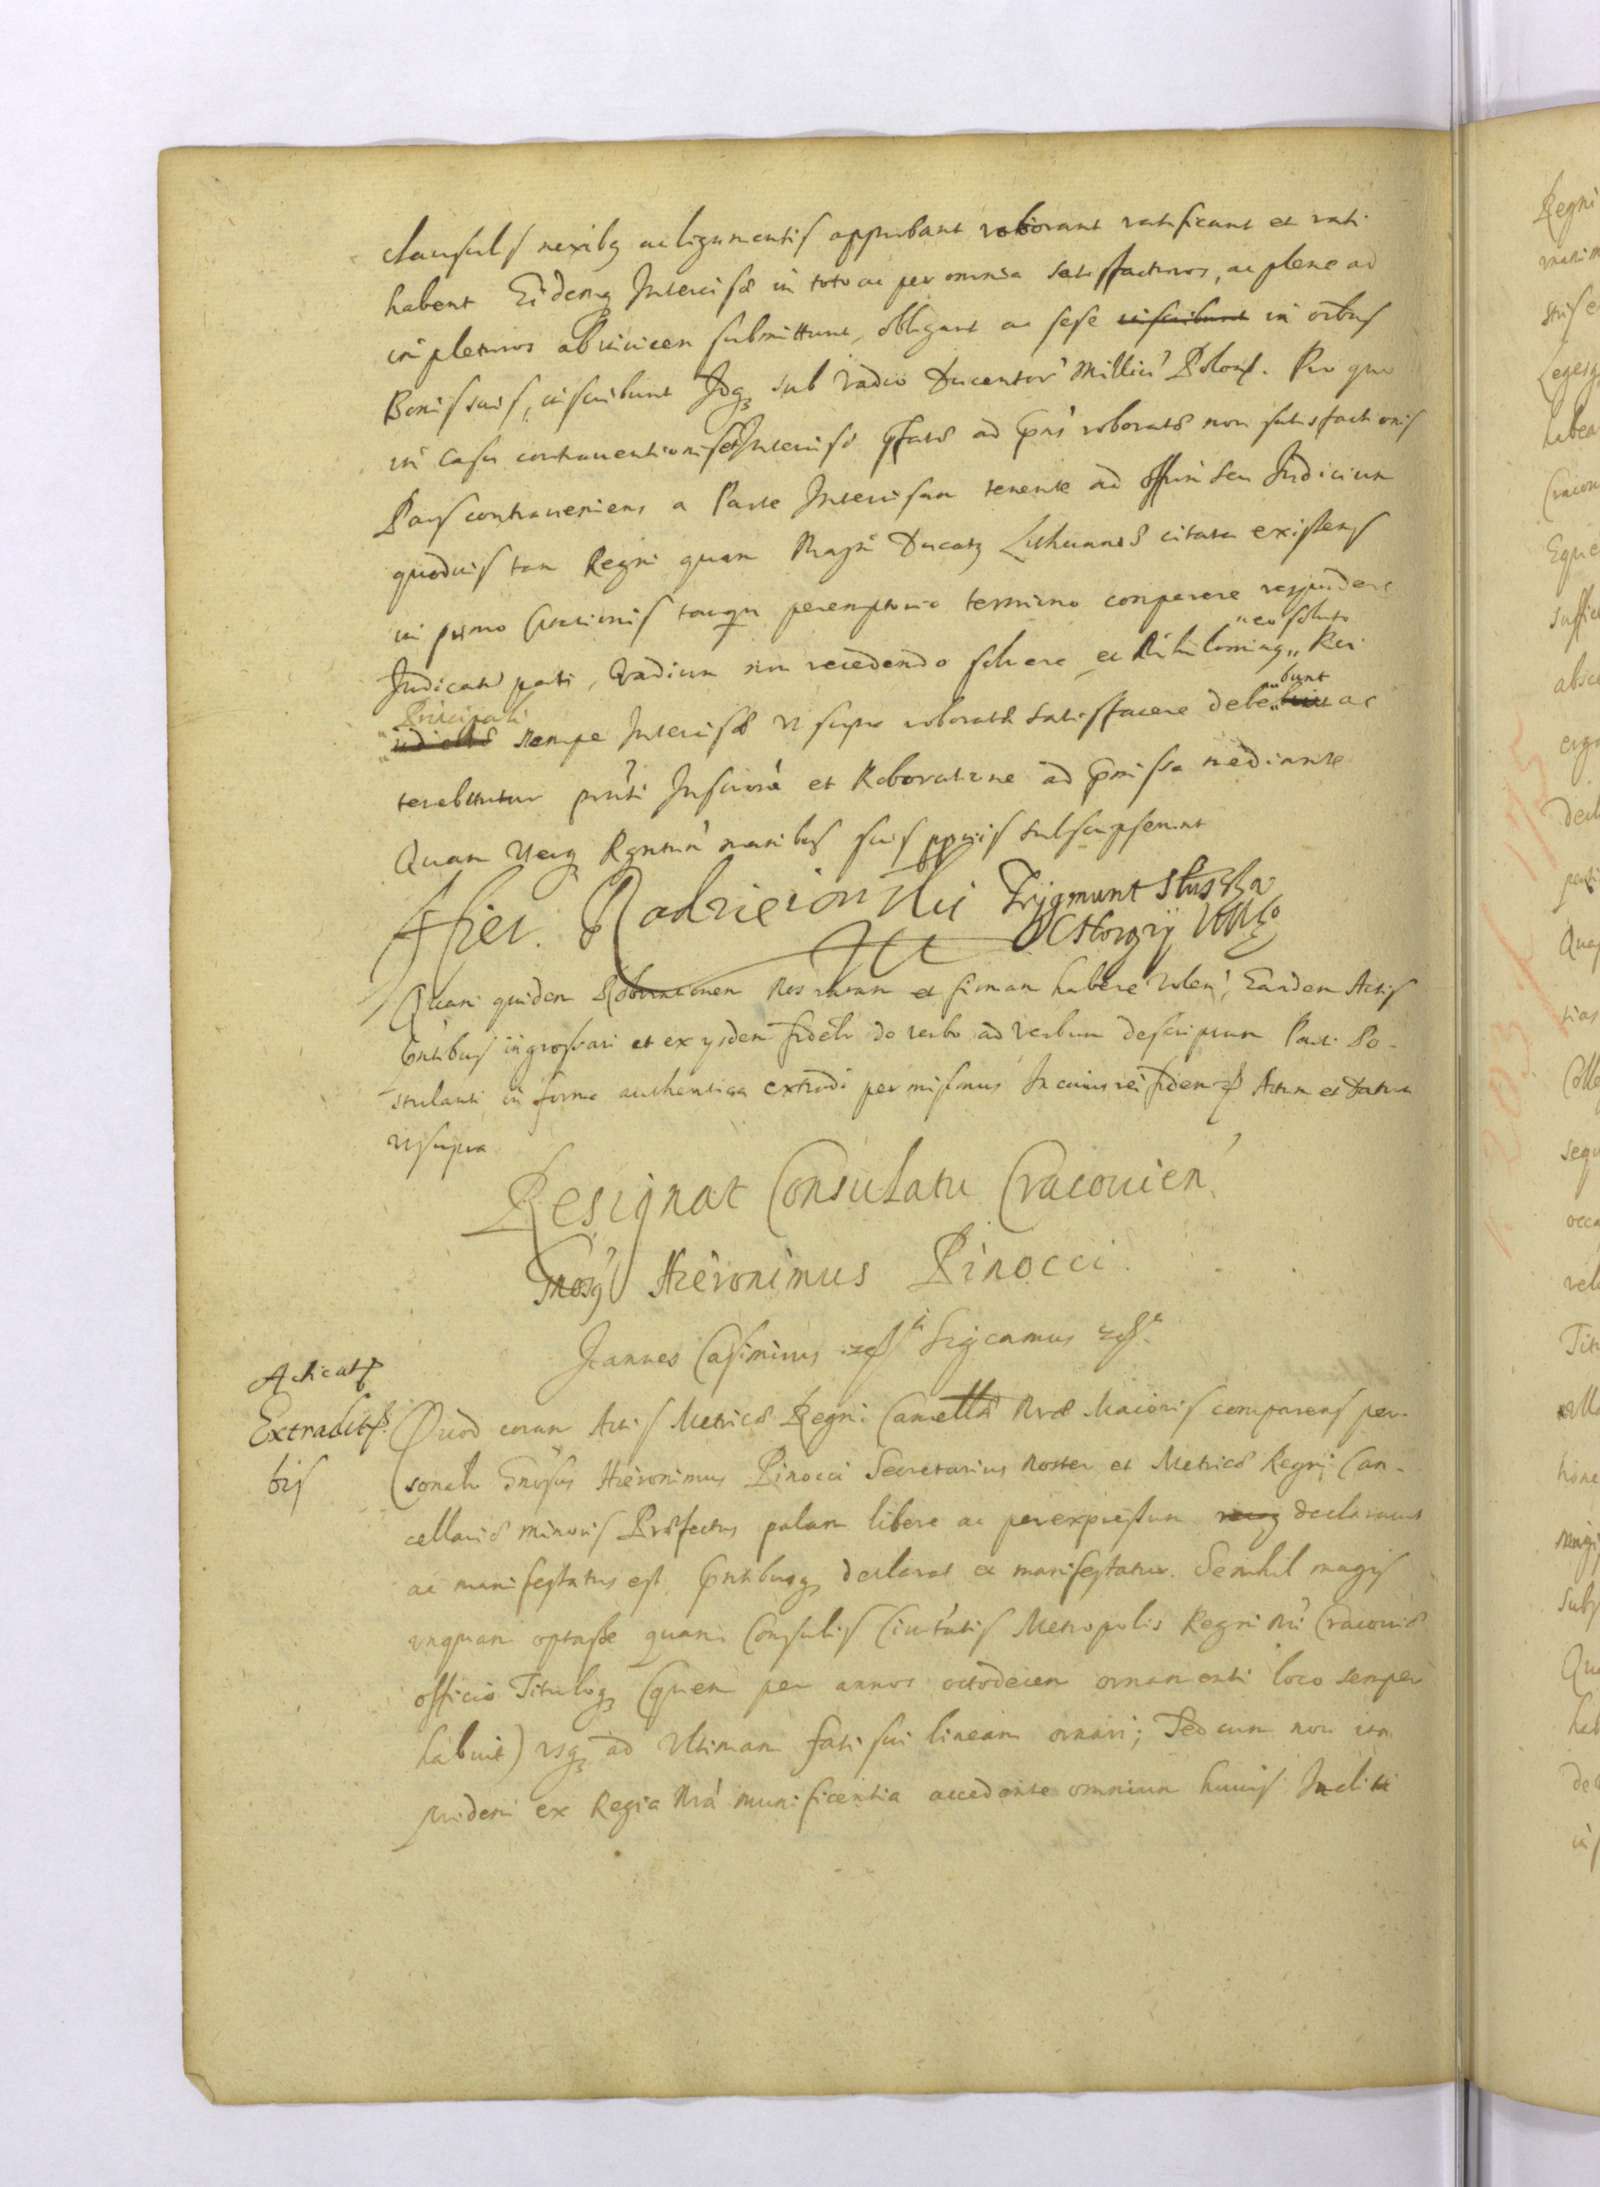 clausulis nexibq ac ligamentis approbant roborant ratificant et rati
habent Eidemq Intercisæ in toto ac per omnia satisfacturos, ac plene ad
impleturos abinvicem submittunt, obligant ac sese inscribunt in oıbus
Bonis suis, inscribunt Idq sub vadio Ducentor Milliu Polon. Pro quo
in casu contraventionis et Intercisæ pfatæ ad pns roboratæ non satisfactionis
Pars contraveniens a Parte Intercisam tenente ad Offm seu Judicium
quodvis tam Regni quam Magni Ducatq Lithuaniæ citata existens
in primo Citationis tanqm peremptorio termino comparere respondere
Judicatu pati, Vadium non recedendo solvere et Nihilominq „ Rei
„eo soluto
Principali
„ nempe Intercisæ ut supra roboratæ satisfacere debe„ ac
„bunt
tenebuntur pnti Inscriptne et Roboratione ad pmissa mediante
Quam Uterq Rgntiu manibus suis pprijs subscripserunt
Hier. Radzieiowski Zygmunt Słuszka
Chorąży WXL
Quam quidem Roborationem Nos ratam et firmam habere Volen, Eandem Actis
pntibus ingrossari et ex ysdem fideli de verbo ad verbum descriptam Parti Po-
stulanti in forma authentica extradi permisimus In cuius rei fidem Actum et Datum
ut supra
Resignat Consulatu Cracovien
Gnosq Hieronimus Pinocci
Joannes Casimirus Significamus
Acticat
Extradit
bis
Quod coram Actis Metricæ Regni Cancellæ Nræ Maioris comparens per-
sonalr Gnosus Hieronimus Pinocci Secretarius Noster et Metricæ Regni Can-
cellariæ minoris Præfectus palam libere ac per expressum declaravit
ac manifestatus est, pntibusq declarat et manifestatur. Se nihil magis
unquam optasse quam Consulis Civitatis Metropolis Regni Nri Cracoviæ
officio Tituloq (quem per annos octodecim ornamenti loco semper
habuit) usq ad Ultimam fati sui lineam ornari; Sed cum non ita
pridem ex Regia Nra munificentia accedente omnium huius Incliti